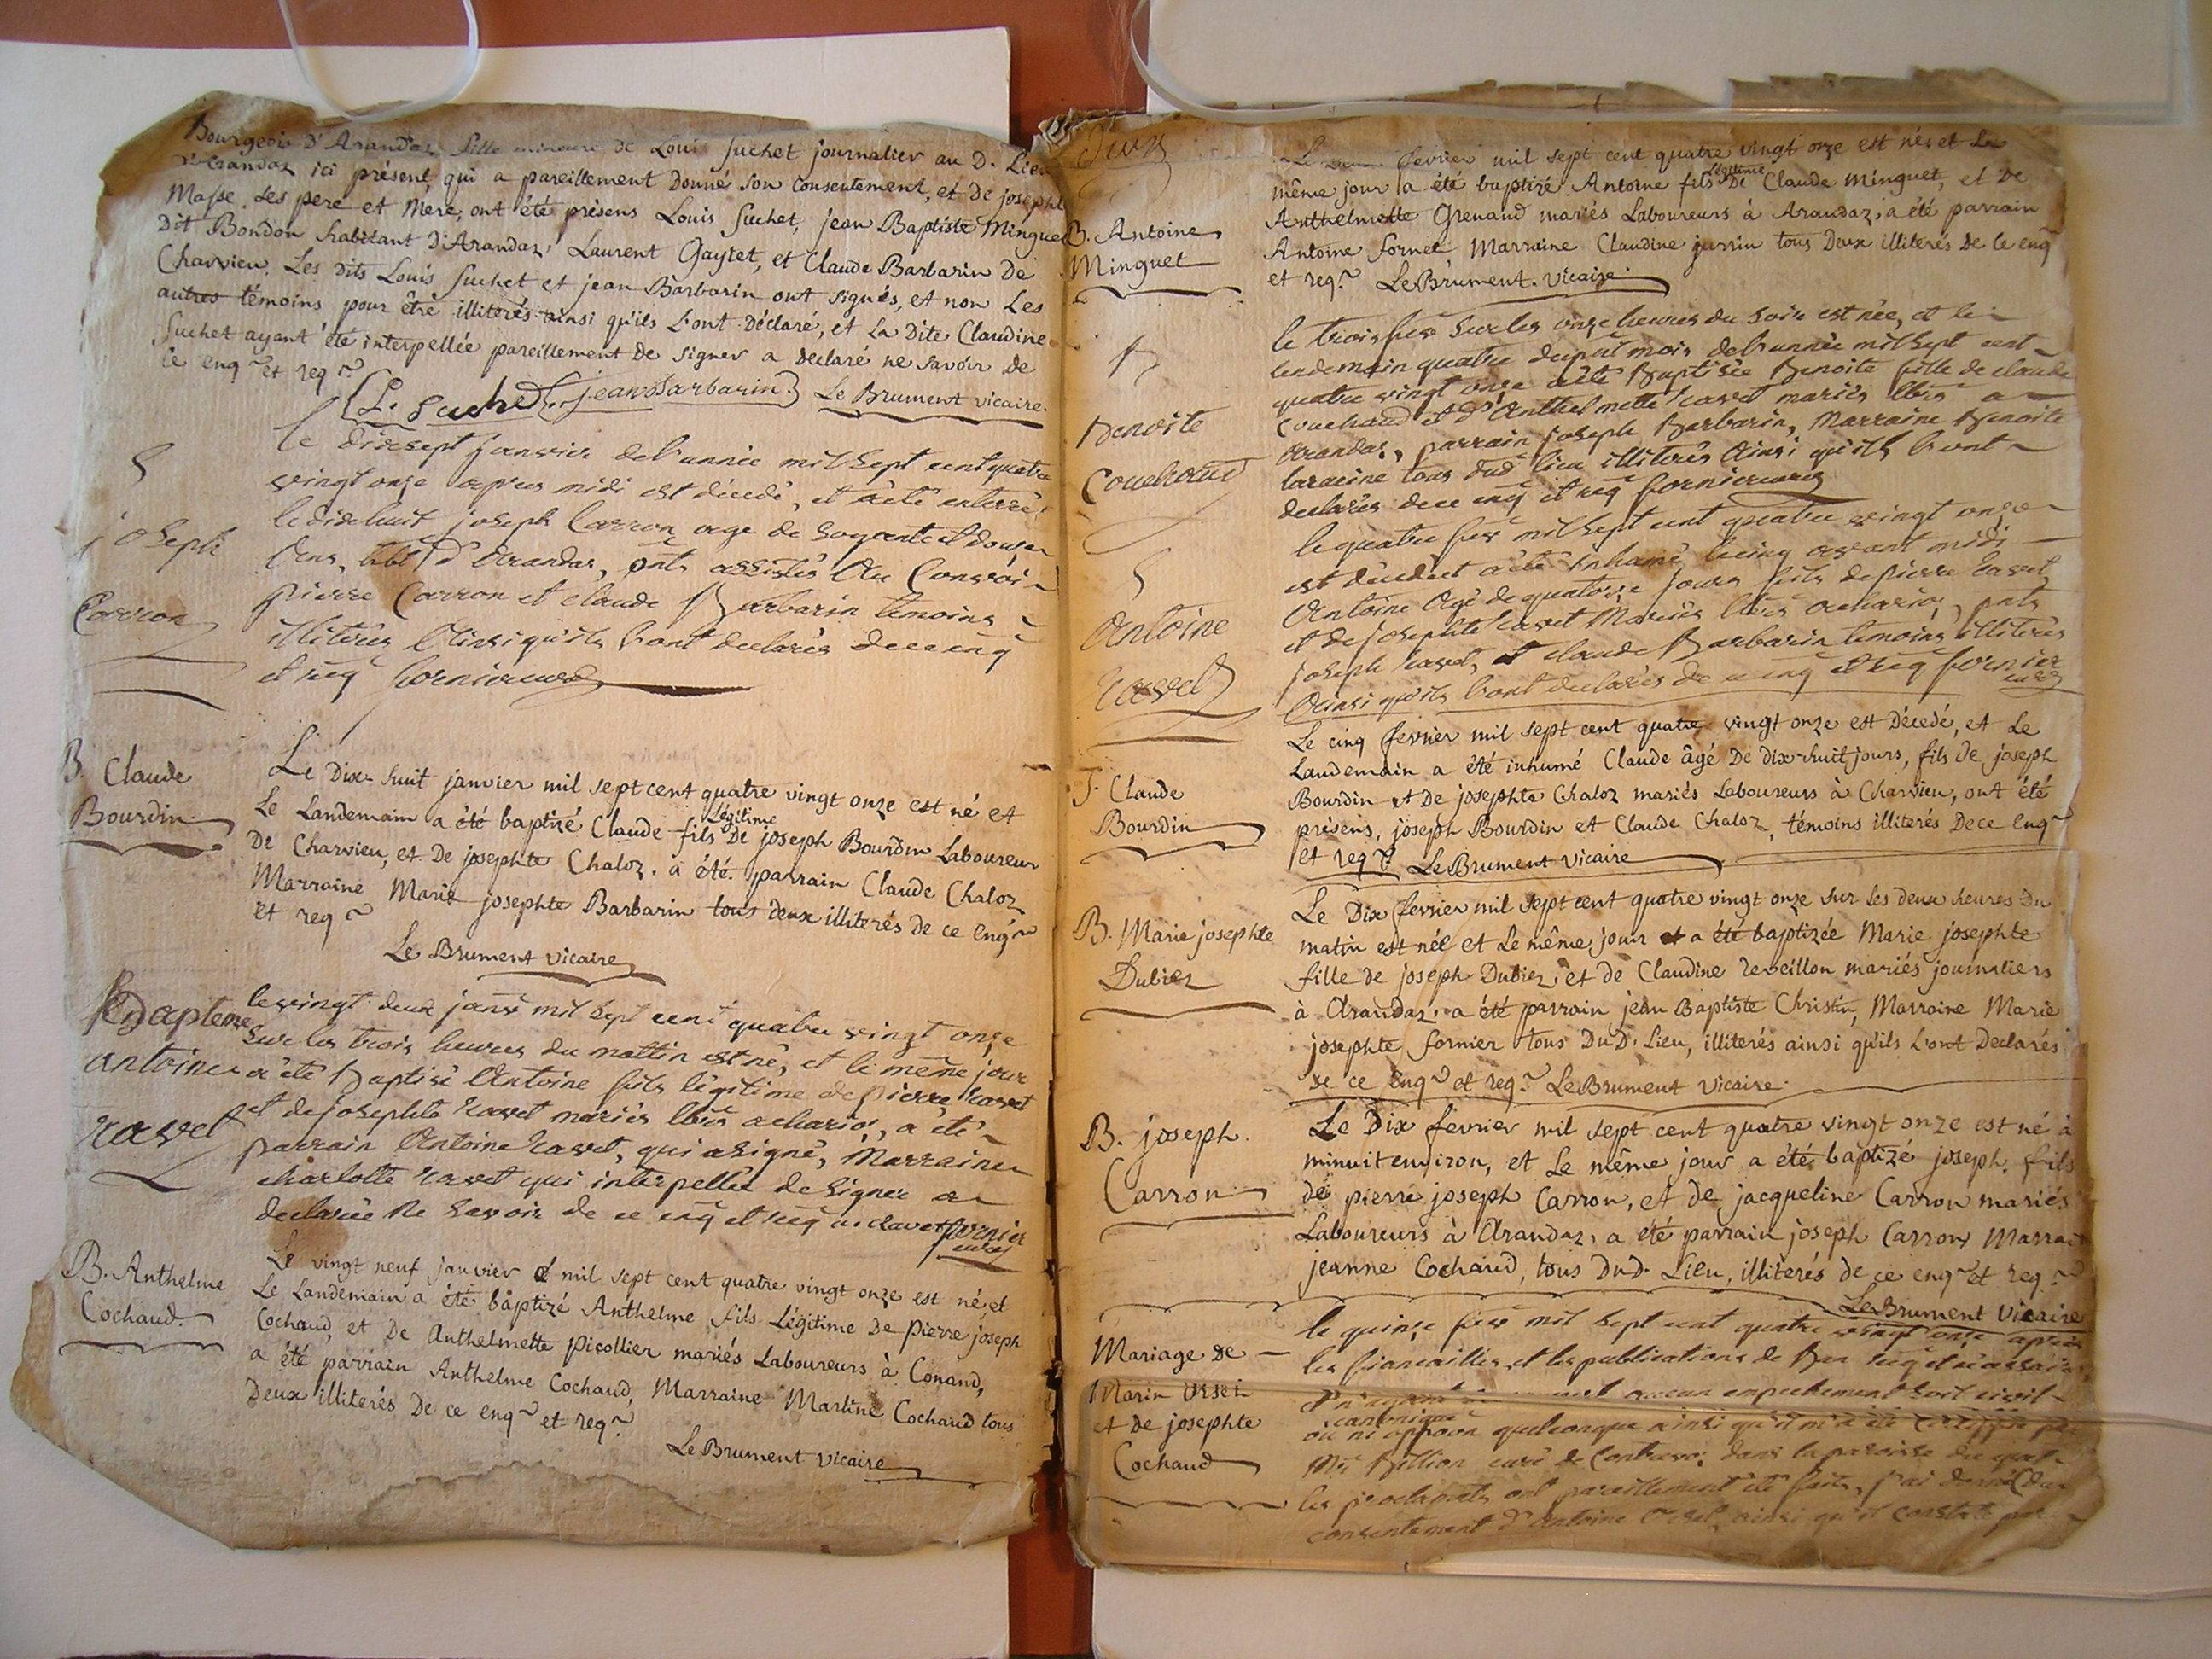 Bourgeois d'Arandaz fille mineure de Louis Suchet journalier au D. Lieu
d'Arandaz ici présent, qui a pareillement Donné son consentement, et de josephte
Masse. ses pere et Mere, ont été présens Louis Suchet, jean Baptiste Minguet
Dit Bondon habitant D'Arandaz, Laurent Gaytet, et Claude Barbarin De
Charvieu. Les dits Louis Suchet et jean Barbarin ont signés, et non Les
autres témoins, pour être illiterés ainsi qu'ils l'ont Déclaré, et La Dite Claudine
Suchet ayant été interpellée pareillement de signer a declaré ne savoir De
ce enqr et reqr
L. Suchet. jean Barbarin. Le Brument vicaire.
joseph
Carron
le dixsept janvier de l'année mil sept cent quatre
vingt onze apres midi est décédé, et a été enterré
le dixhuit joseph Carron age de soyxante et douze
Ans, d'Arandas, pnts assistés Au Convoi
pierre Carron et claude Barbarin temoins
illiterés Ainsi qu'ils l'ont declarés de ce enq
et req fornier curé
B. Claude
Bourdin
Le Dix-huit janvier mil sept cent quatre vingt onze est né et
Le Landemain a été baptizé Claude fils Légitime De joseph Bourdin Laboureur
De Charvieu, et De josephte Chaloz. a été parrain Claude Chaloz
Marraine Marie josephte Barbarin tous deux illiterés de ce Enqr
et reqr
Le Brument vicaire
Bapteme
antoine
ravet
le vingt deux janv mil sept cent quatre vingt onze
sur les trois heures du mattin est né, et le même jour
a été Baptisé Antoine fils légitime de pierre ravet
et de josephte ravet mariés lbrs a, a été
parrain Antoine ravet, qui a signé, Marraine
charlotte ravet qui interpellée de signer a
declarée Ne savoir de ce enq et req a ravet fornier
curé
B. Anthelme
Cochaud.
Le vingt neuf janvier mil sept cent quatre vingt onze est né, et
Le Landemain a été baptizé Anthelme fils Légitime De pierre joseph
Cochaud, et De Anthelmette Picollier mariés Laboureurs à Conand,
a été parrain Anthelme Cochaud, Marraine Martine Cochaud tous
Deux illiterés De ce enqr et reqr
Le Brument vicaire
B. Antoine
Minguet
Le fevrier mil sept cent quatre vingt onze est né, et Le
même jour a été baptizé Antoine fils légitime De Claude Minguet, et De
Anthelmette Grenaud mariés Laboureurs à Arandaz, a été parrain
Antoine fornet, Marraine Claudine juvrin tous Deux illiterés De ce enqr
et reqr Le Brument. vicaire.
B
Benoite
Couchoud
le trois fev sur les onze heures du soir est née, et le
lendemain quatre du pnt mois de l'année mil sept cent
quatre vingt onze a été Baptisée Benoite fille de claude
Couchoud et d'Anthelmette ravet mariés lbrs a
Arandas, parrain joseph Barbarin, Marraine Benoite
laracine tous dud lieu illiterés Ainsi qu'ils l'ont
declarés de ce enq et req fornier curé
Antoine
ravet
le quatre fev mil sept cent quatre vingt onze
est décédé et a été inhumé le cinq avant midi
Antoine Agé de quatorze jours fils de pierre ravet
et de josephte ravet Mariés lbrs, pnts
joseph ravet, et claude Barbarin temoins illiterés
Ainsi qu'ils l'ont declarés de ce enq et req fornier
curé
Claude
Bourdin
Le cinq fevrier mil sept cent quatre vingt onze est Décédé, et Le
Landemain a été inhumé Claude âgé De dix-huit jours, fils de joseph
Bourdin et De josephte Chaloz mariés Laboureurs à Charvieu, ont été
présens, joseph Bourdin et Claude Chaloz, témoins illiterés De ce Enqr
et reqr Le Brument vicaire
B. Marie josephte
Dubiez
Le Dix fevrier mil sept cent quatre vingt onze sur les deux heures Du
matin est née et Le même jour a été baptizée Marie josephte
fille de joseph Dubiez, et de Claudine reveillon mariés journaliers
à Arandaz, a été parrain jean Baptiste Christin, Marraine Marie
josephte fornier tous Du D. Lieu, illiterés ainsi qu'ils l'ont Declarés
de ce enqr et reqr Le Brument vicaire.
B. joseph.
Carron
Le Dix fevrier mil sept cent quatre vingt onze est né à
minuit environ, et Le même jour a été baptizé joseph. fils
de pierre joseph Carron, et de jacqueline Carron mariés
Laboureurs à Arandaz, a été parrain joseph Carron Marrai
jeanne Cochaud, tous Du D. Lieu, illiterés de ce enqr et reqr
Le Brument vicaire
Mariage de
Marin Orset
et de josephte
Cochaud
le quinze fev mil sept cent quatre vingt onze apres
les fiancailles, et les publications de Ban
aucun empechement soit civil
canonique
ou ni opposon quelconque ainsi qu'il m'a été
Mr Billion curé de Contrevoz dans la paroisse du quel
les proclamats ont pareillement été faits, j'ai donné du
consentement d'antoine Orset, ainsi qu'il conste par